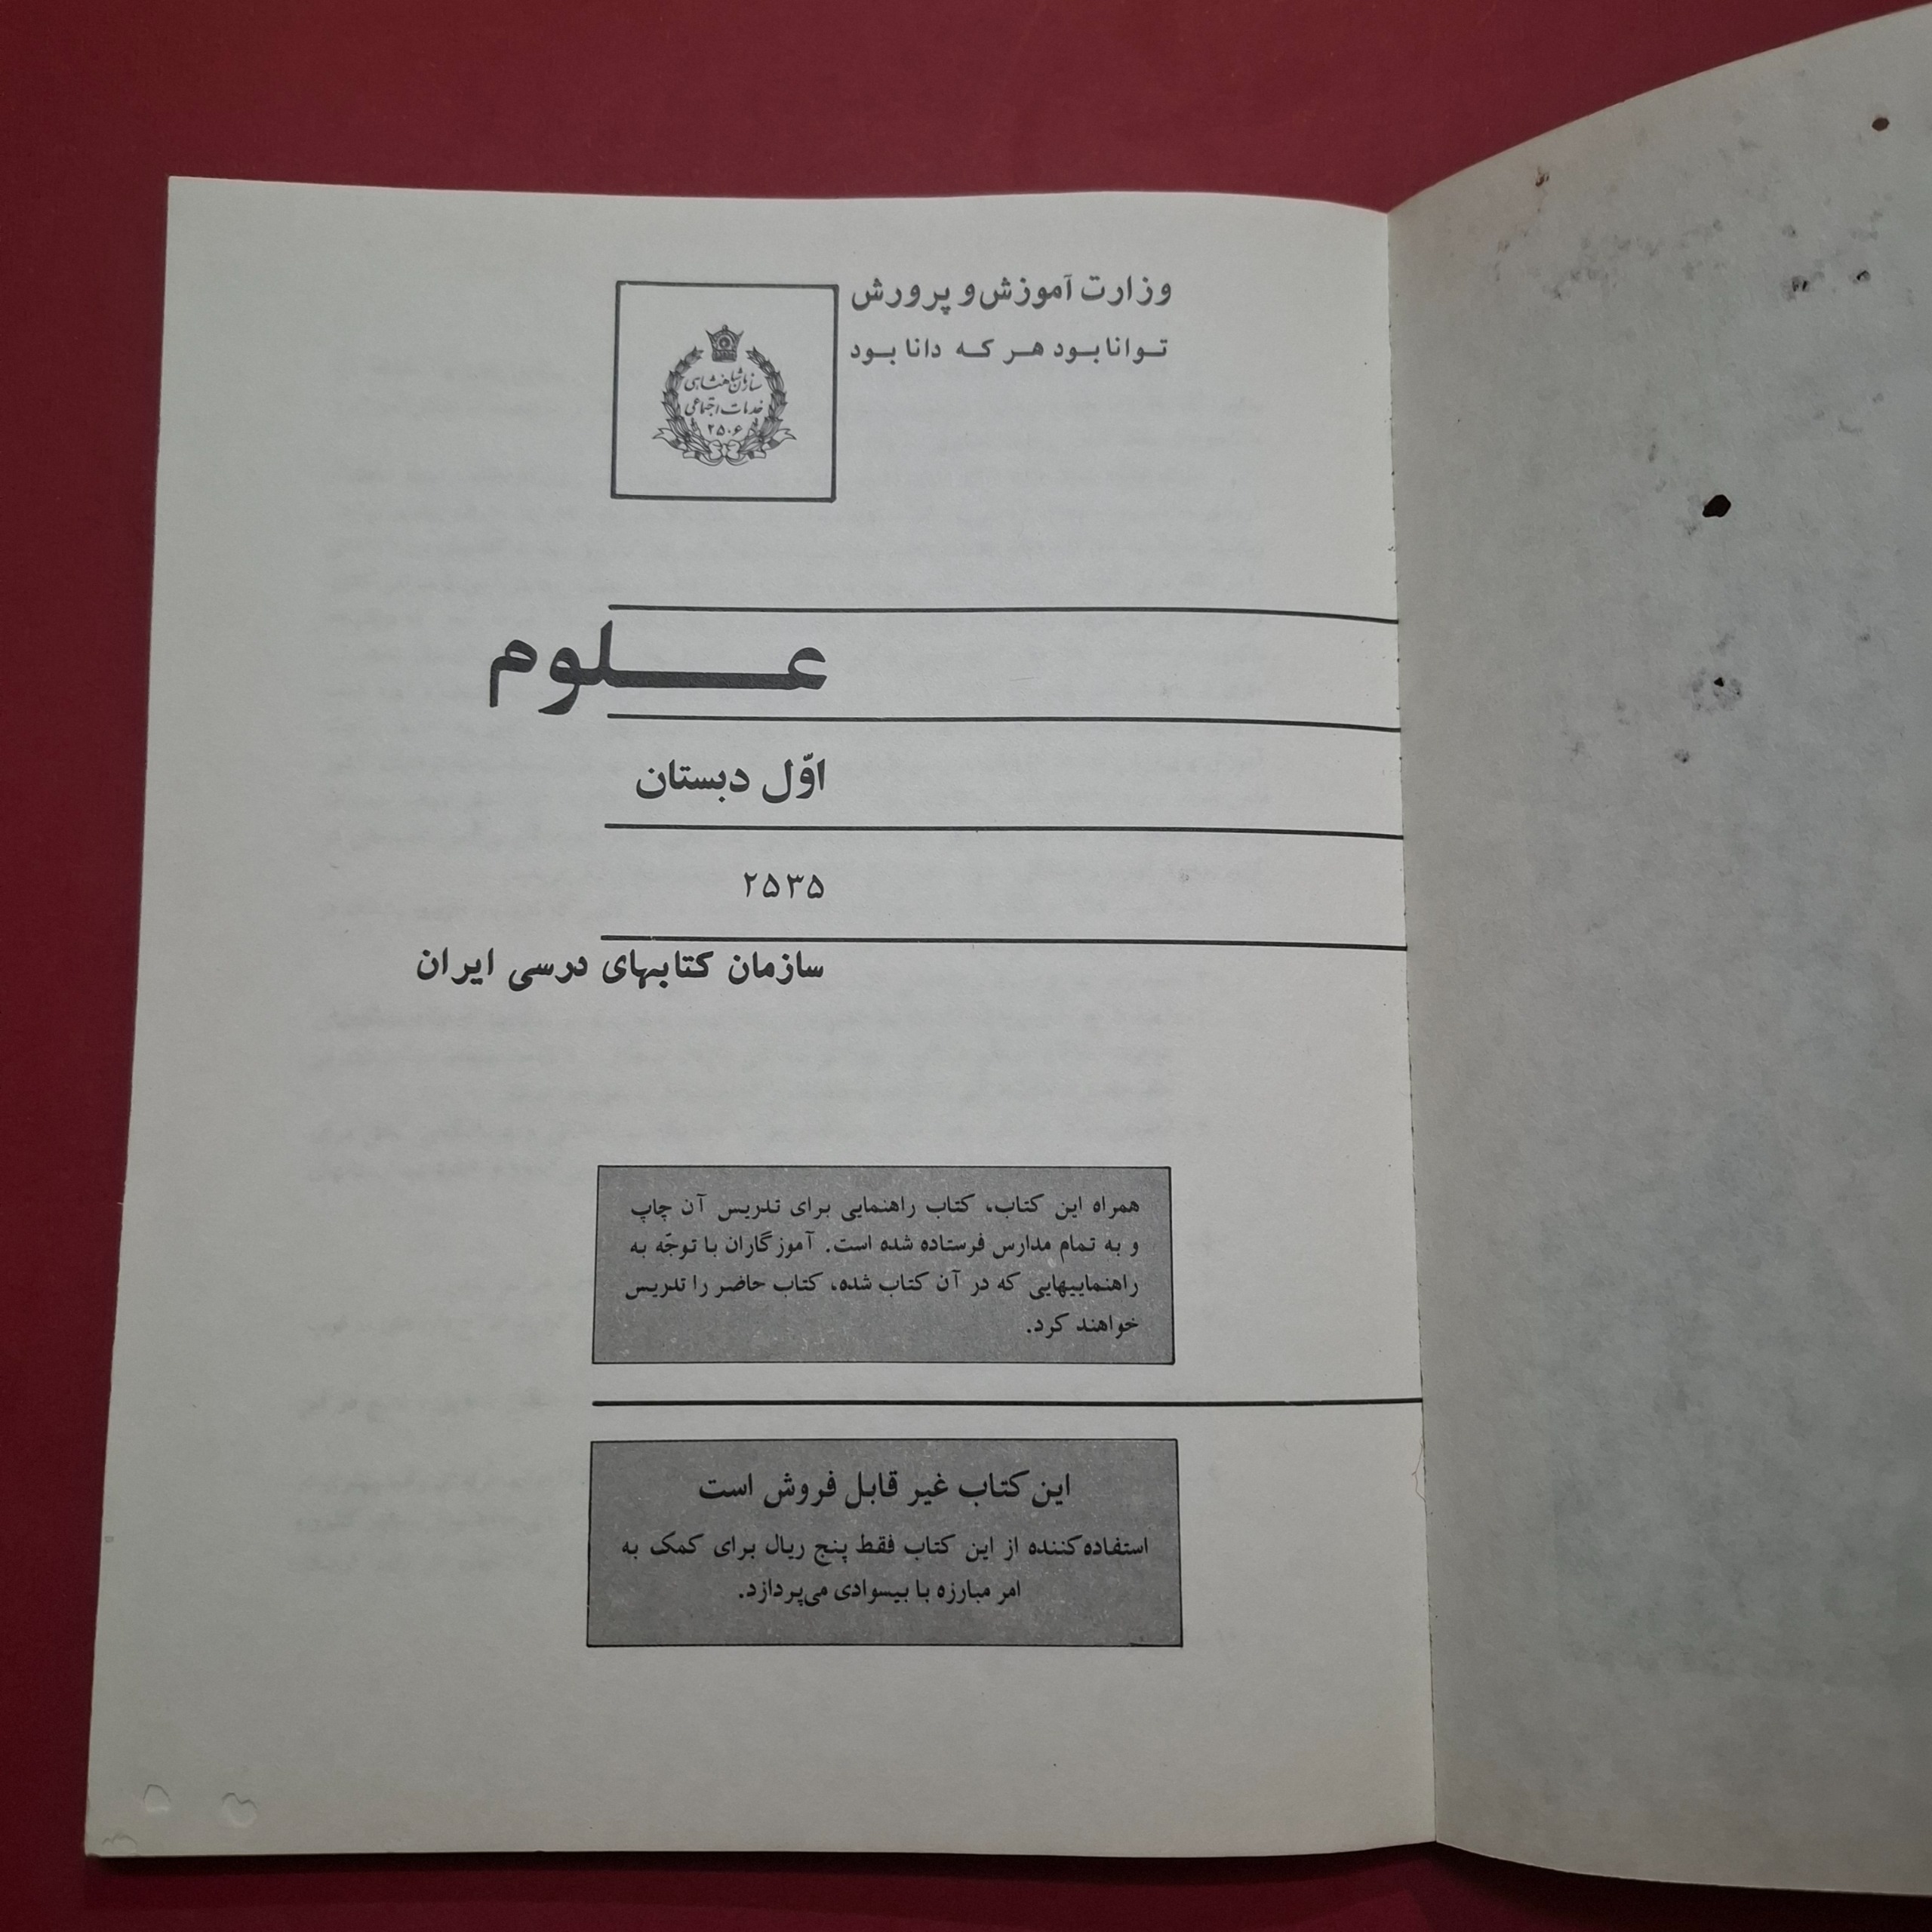 وزارت آموزش و پرورش
توانا بود هر که دانا بود
سازمان شاهنشاهی
خدمات اجتماعی
۲۵۰۶
علوم
اوّل دبستان
۲۵۳۵
سازمان کتابهای درسی ایران
همراه این کتاب، کتاب راهنمایی برای تدریس آن چاپ
و به تمام مدارس فرستاده شده است. آموزگاران با توجّه به
راهنماییهایی که در آن کتاب شده، کتاب حاضر را تدریس
خواهند کرد.
این کتاب غیر قابل فروش است
استفاده‌کننده از این کتاب فقط پنج ریال برای کمک به
امر مبارزه با بیسوادی می‌پردازد.